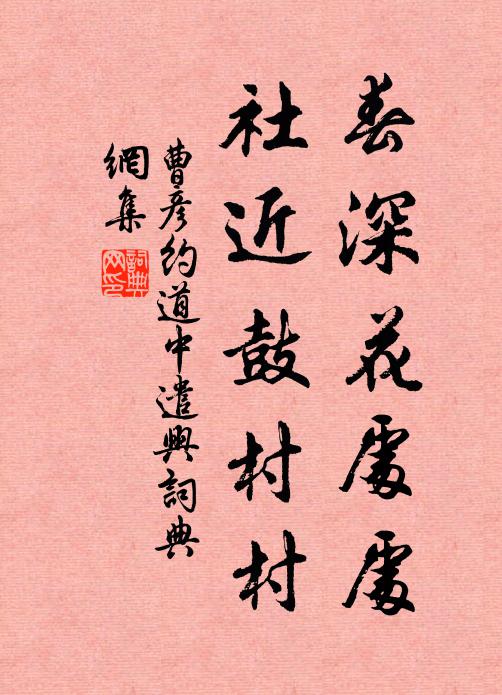 春深花處處
社近鼓村村
曹彥約道中遣興詞典
網集
詞典
网印